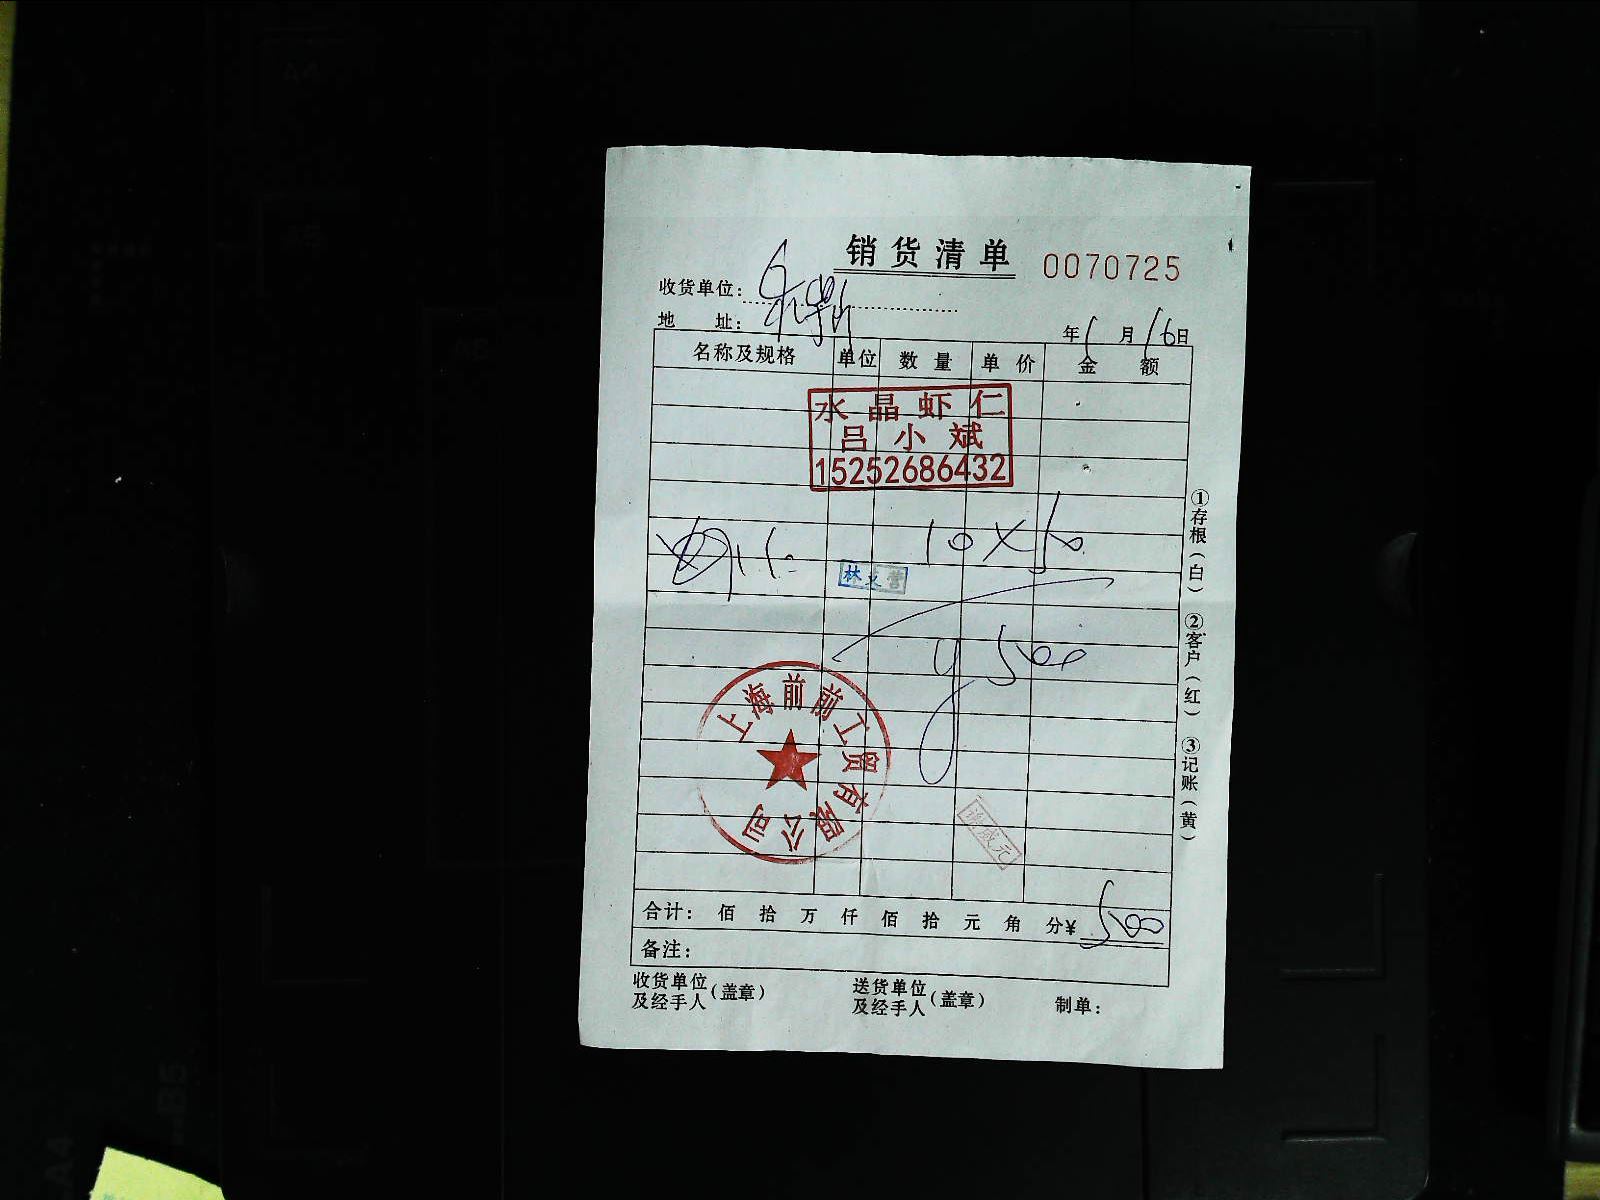 销货清单 0070725
收货单位：
地 址： 年 1 月 16 日
名称及规格 单位 数量 单价 金额
水晶虾仁
吕小斌
15252686432
虾仁 10×50
林文营
¥500
上海前前工贸有限公司
合计： 佰 拾 万 仟 佰 拾 元 角 分¥ 500
备注：
收货单位及经手人（盖章） 送货单位及经手人（盖章） 制单：
①存根（白） ②客户（红） ③记账（黄）
A4
B5